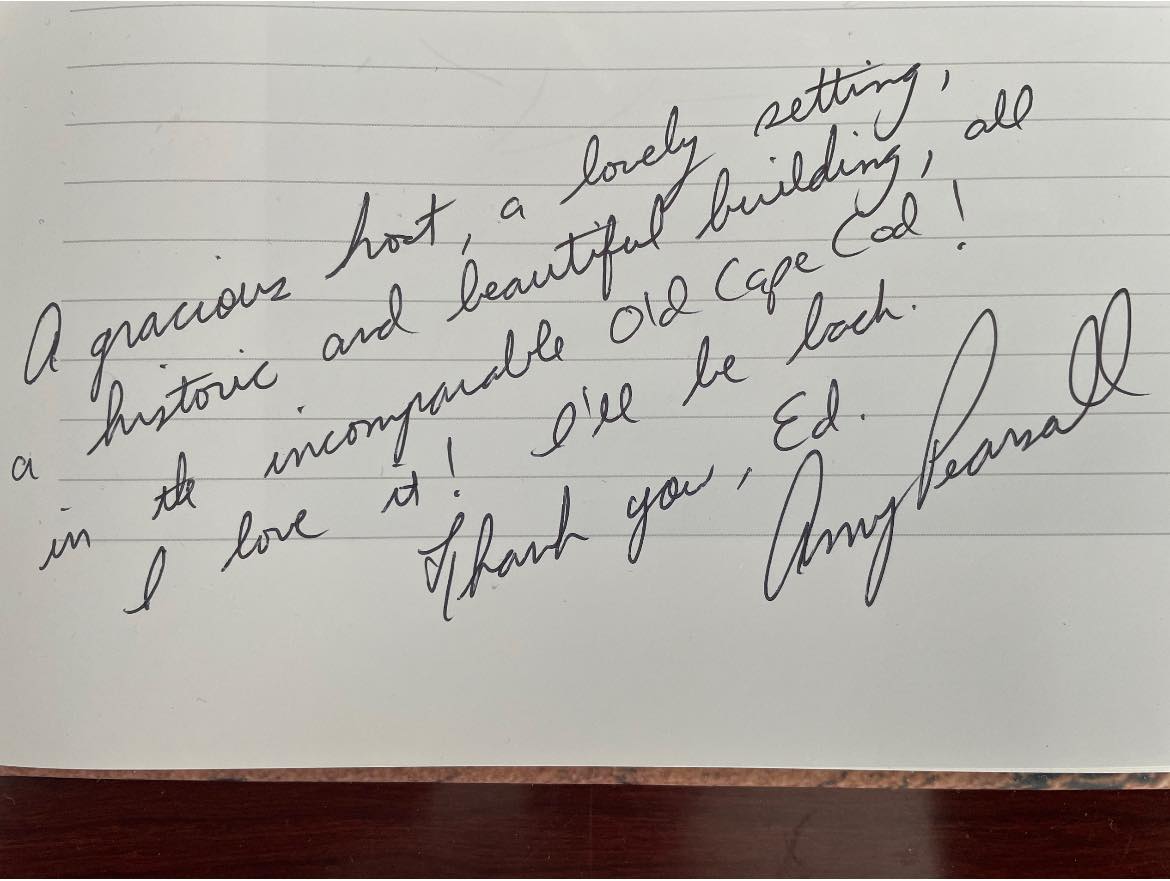 A gracious host, a lovely setting,
a historic and beautiful building, all
in the incomparable Old Cape Cod!
I love it! I'll be back.
Thank you, Ed.
Amy Pearsall